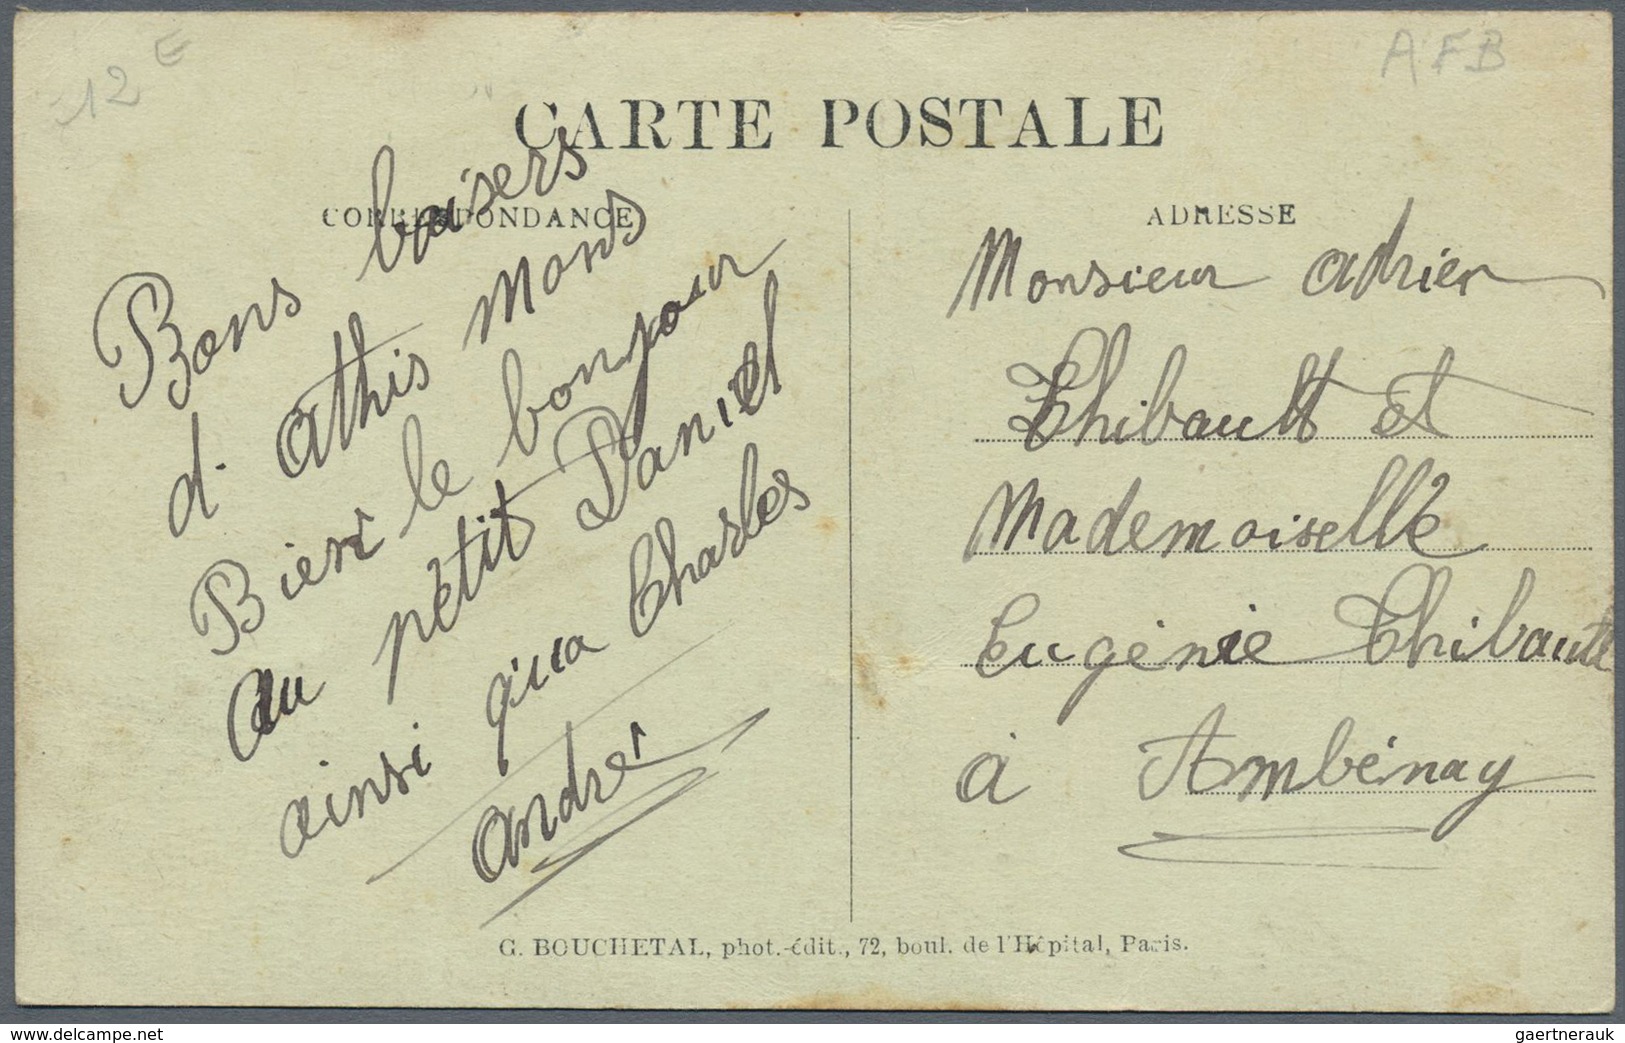 12 E
AFB
CARTE POSTALE
CORRESPONDANCE
Bons baisers
d. Athis Mons
Bien le bonjour
au petit Daniel
ainsi qua Charles
Andre
ADRESSE
Monsieur Adrien
Thibault et
Mademoiselle
Eugénie Thibault
à Ambénay
G. BOUCHETAL, phot.-édit., 72, boul. de l'Hôpital, Paris.
www.delcampe.net
gaertnerauk